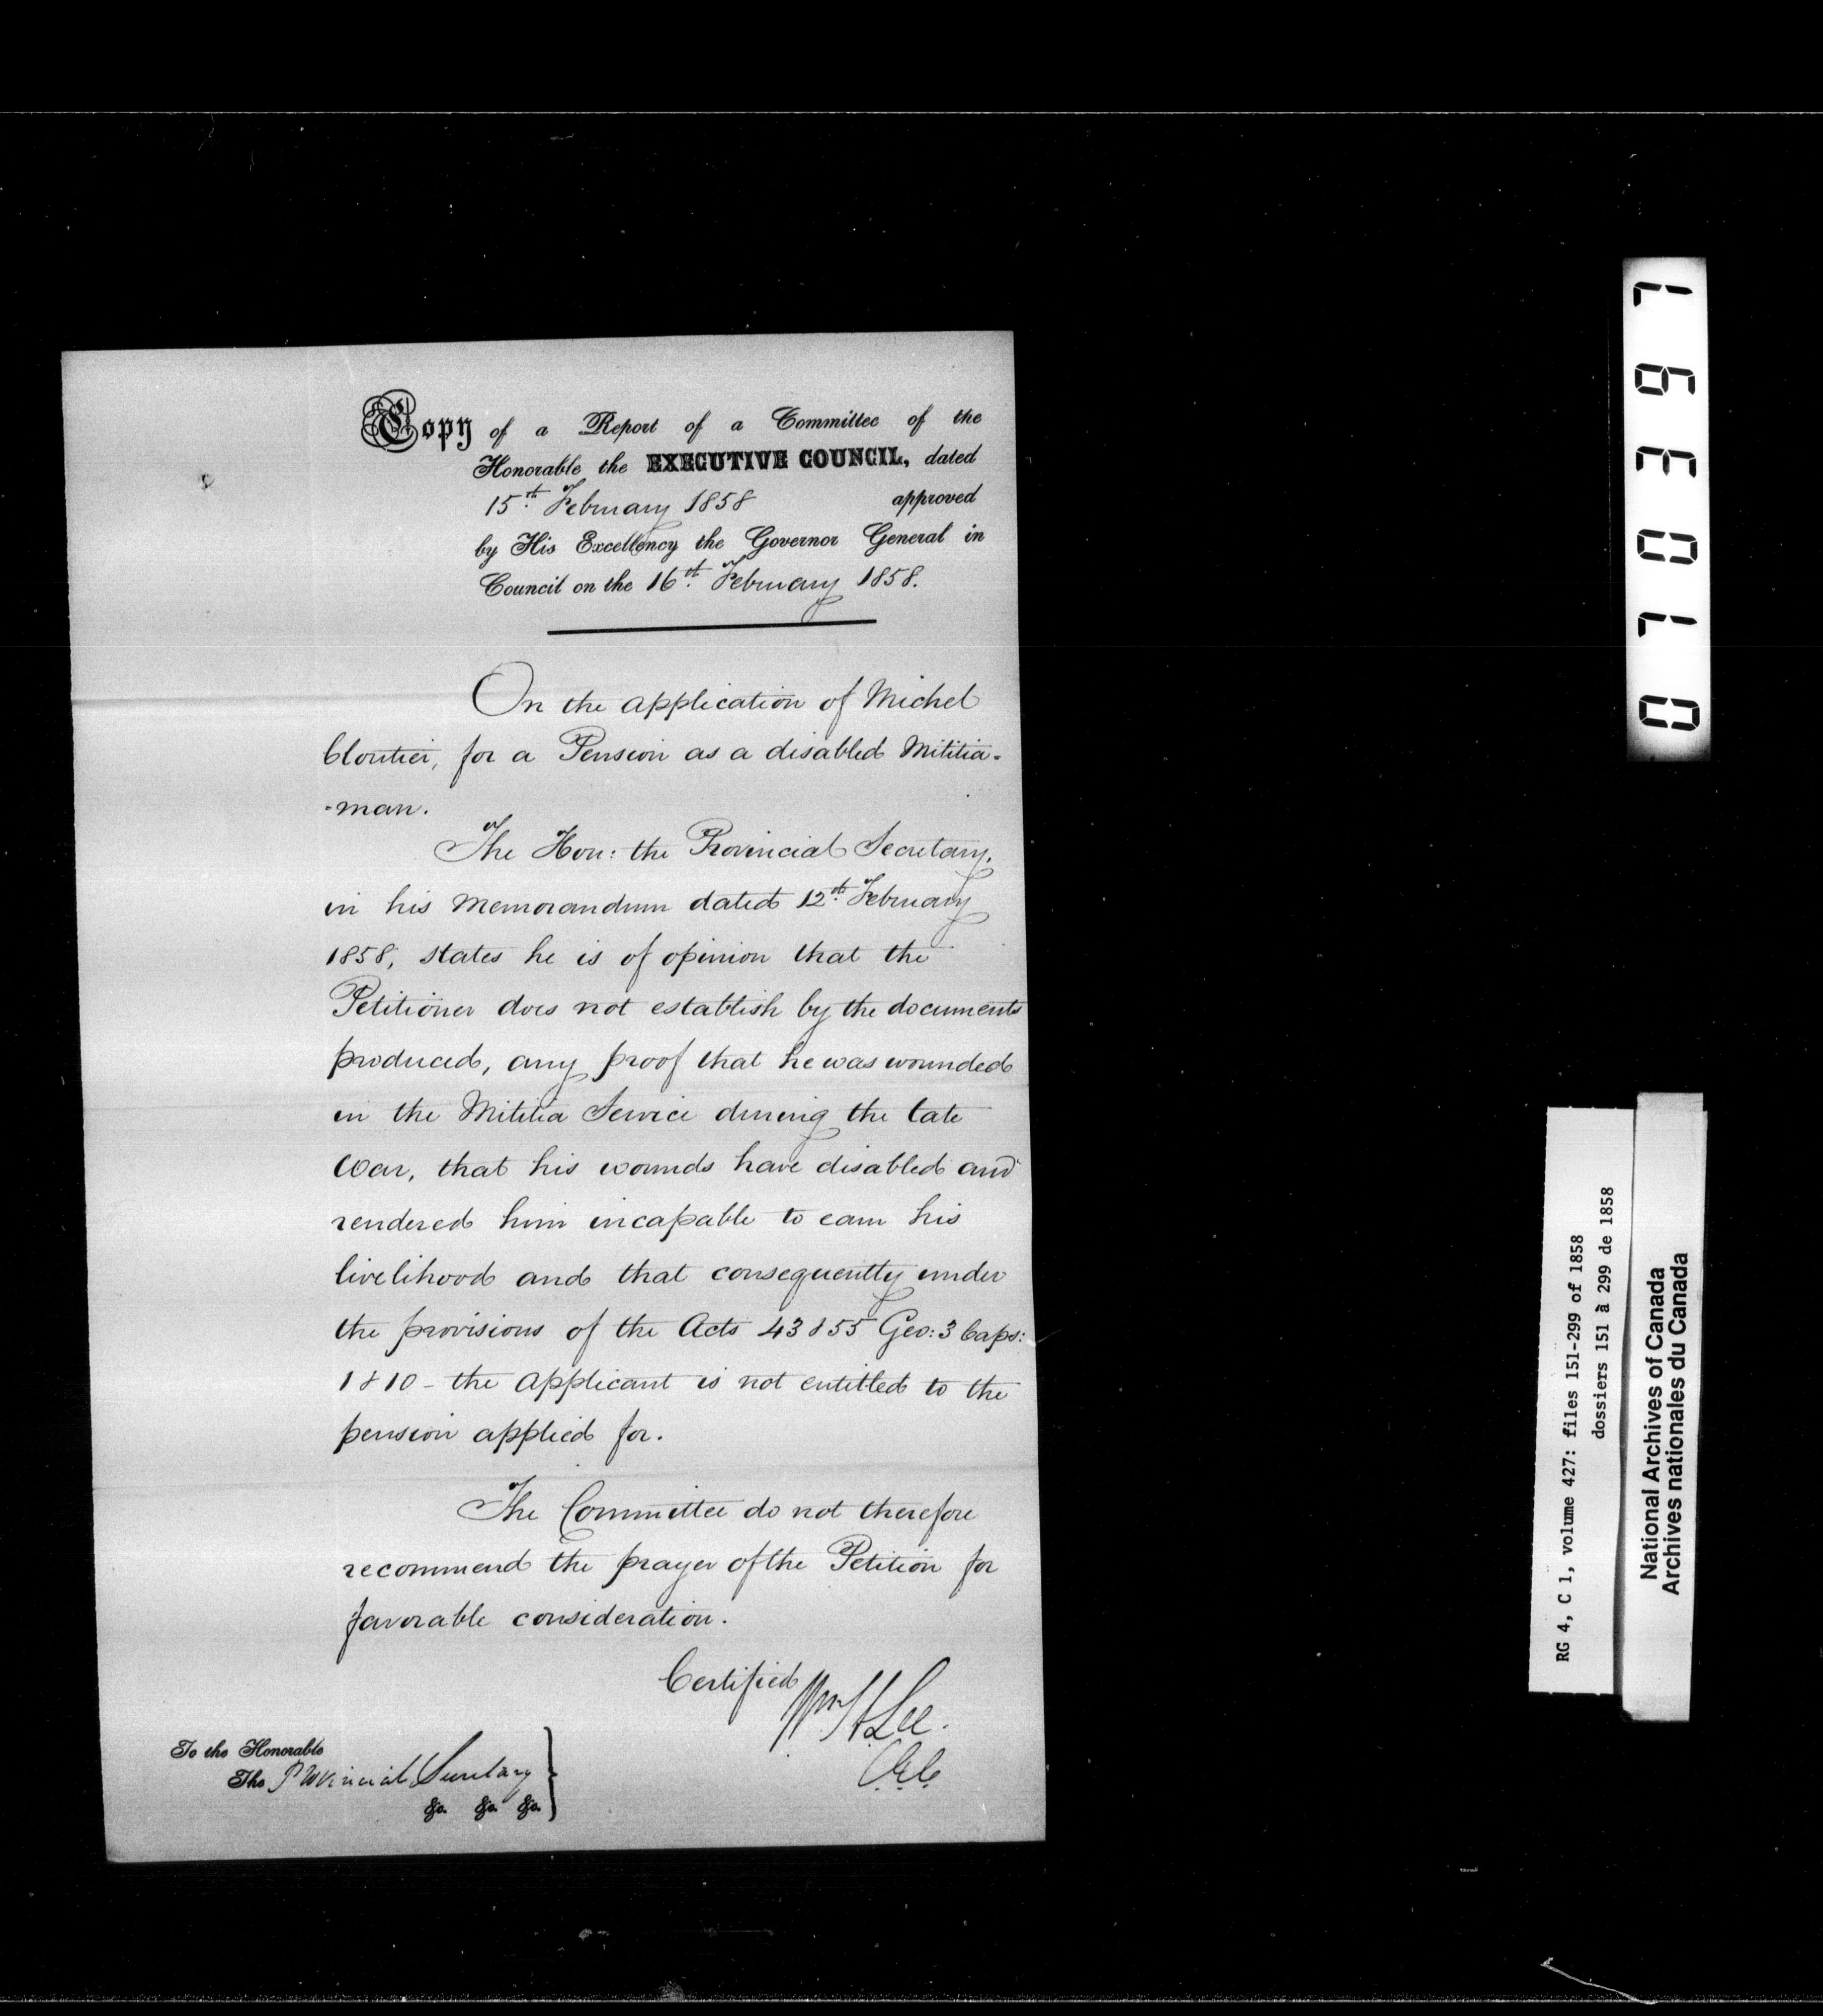 Copy of a Report of a Committee of the
Honorable the EXECUTIVE COUNCIL, dated
15th February 1858 approved
by His Excellency the Governor General in
Council on the 16th February 1858.
On the application of Michel
Cloutier, for a Pension as a disabled Militia-
-man.
The Hon: the Provincial Secretary,
in his Memorandum dated 12th February
1858, states he is of opinion that the
Petitioner does not establish by the documents
produced, any proof that he was wounded
in the Militia Service during the late
War, that his wounds have disabled and
rendered him incapable to earn his
livelihood and that consequently under
the provisions of the Acts 43 & 55 Geo: 3 Caps:
1 & 10 - the applicant is not entitled to the
pension applied for.
The Committee do not therefore
recommend the prayer of the Petition for
favorable consideration.
Certified
Wm H Lee.
C.E.C.
To the Honorable
The Provincial Secretary
&c. &c. &c.
010397
RG 4, C 1, volume 427: files 151-299 of 1858
dossiers 151 à 299 de 1858
National Archives of Canada
Archives nationales du Canada